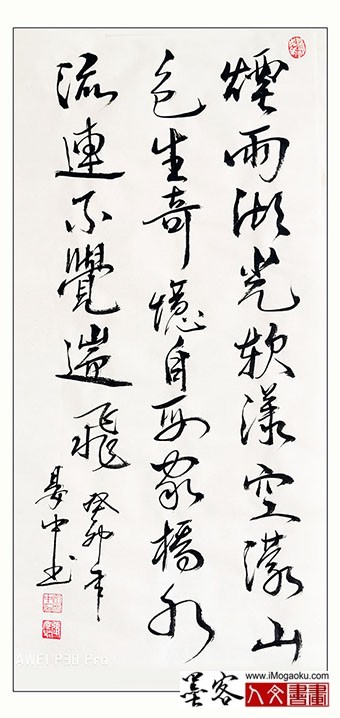 煙雨湖光軟漾空濛山
色生奇憶自家橋水
流連不覺遄飛
癸卯年
中书
AWEI P30 Pro
墨客
www.iMogaoku.com
人文書畫